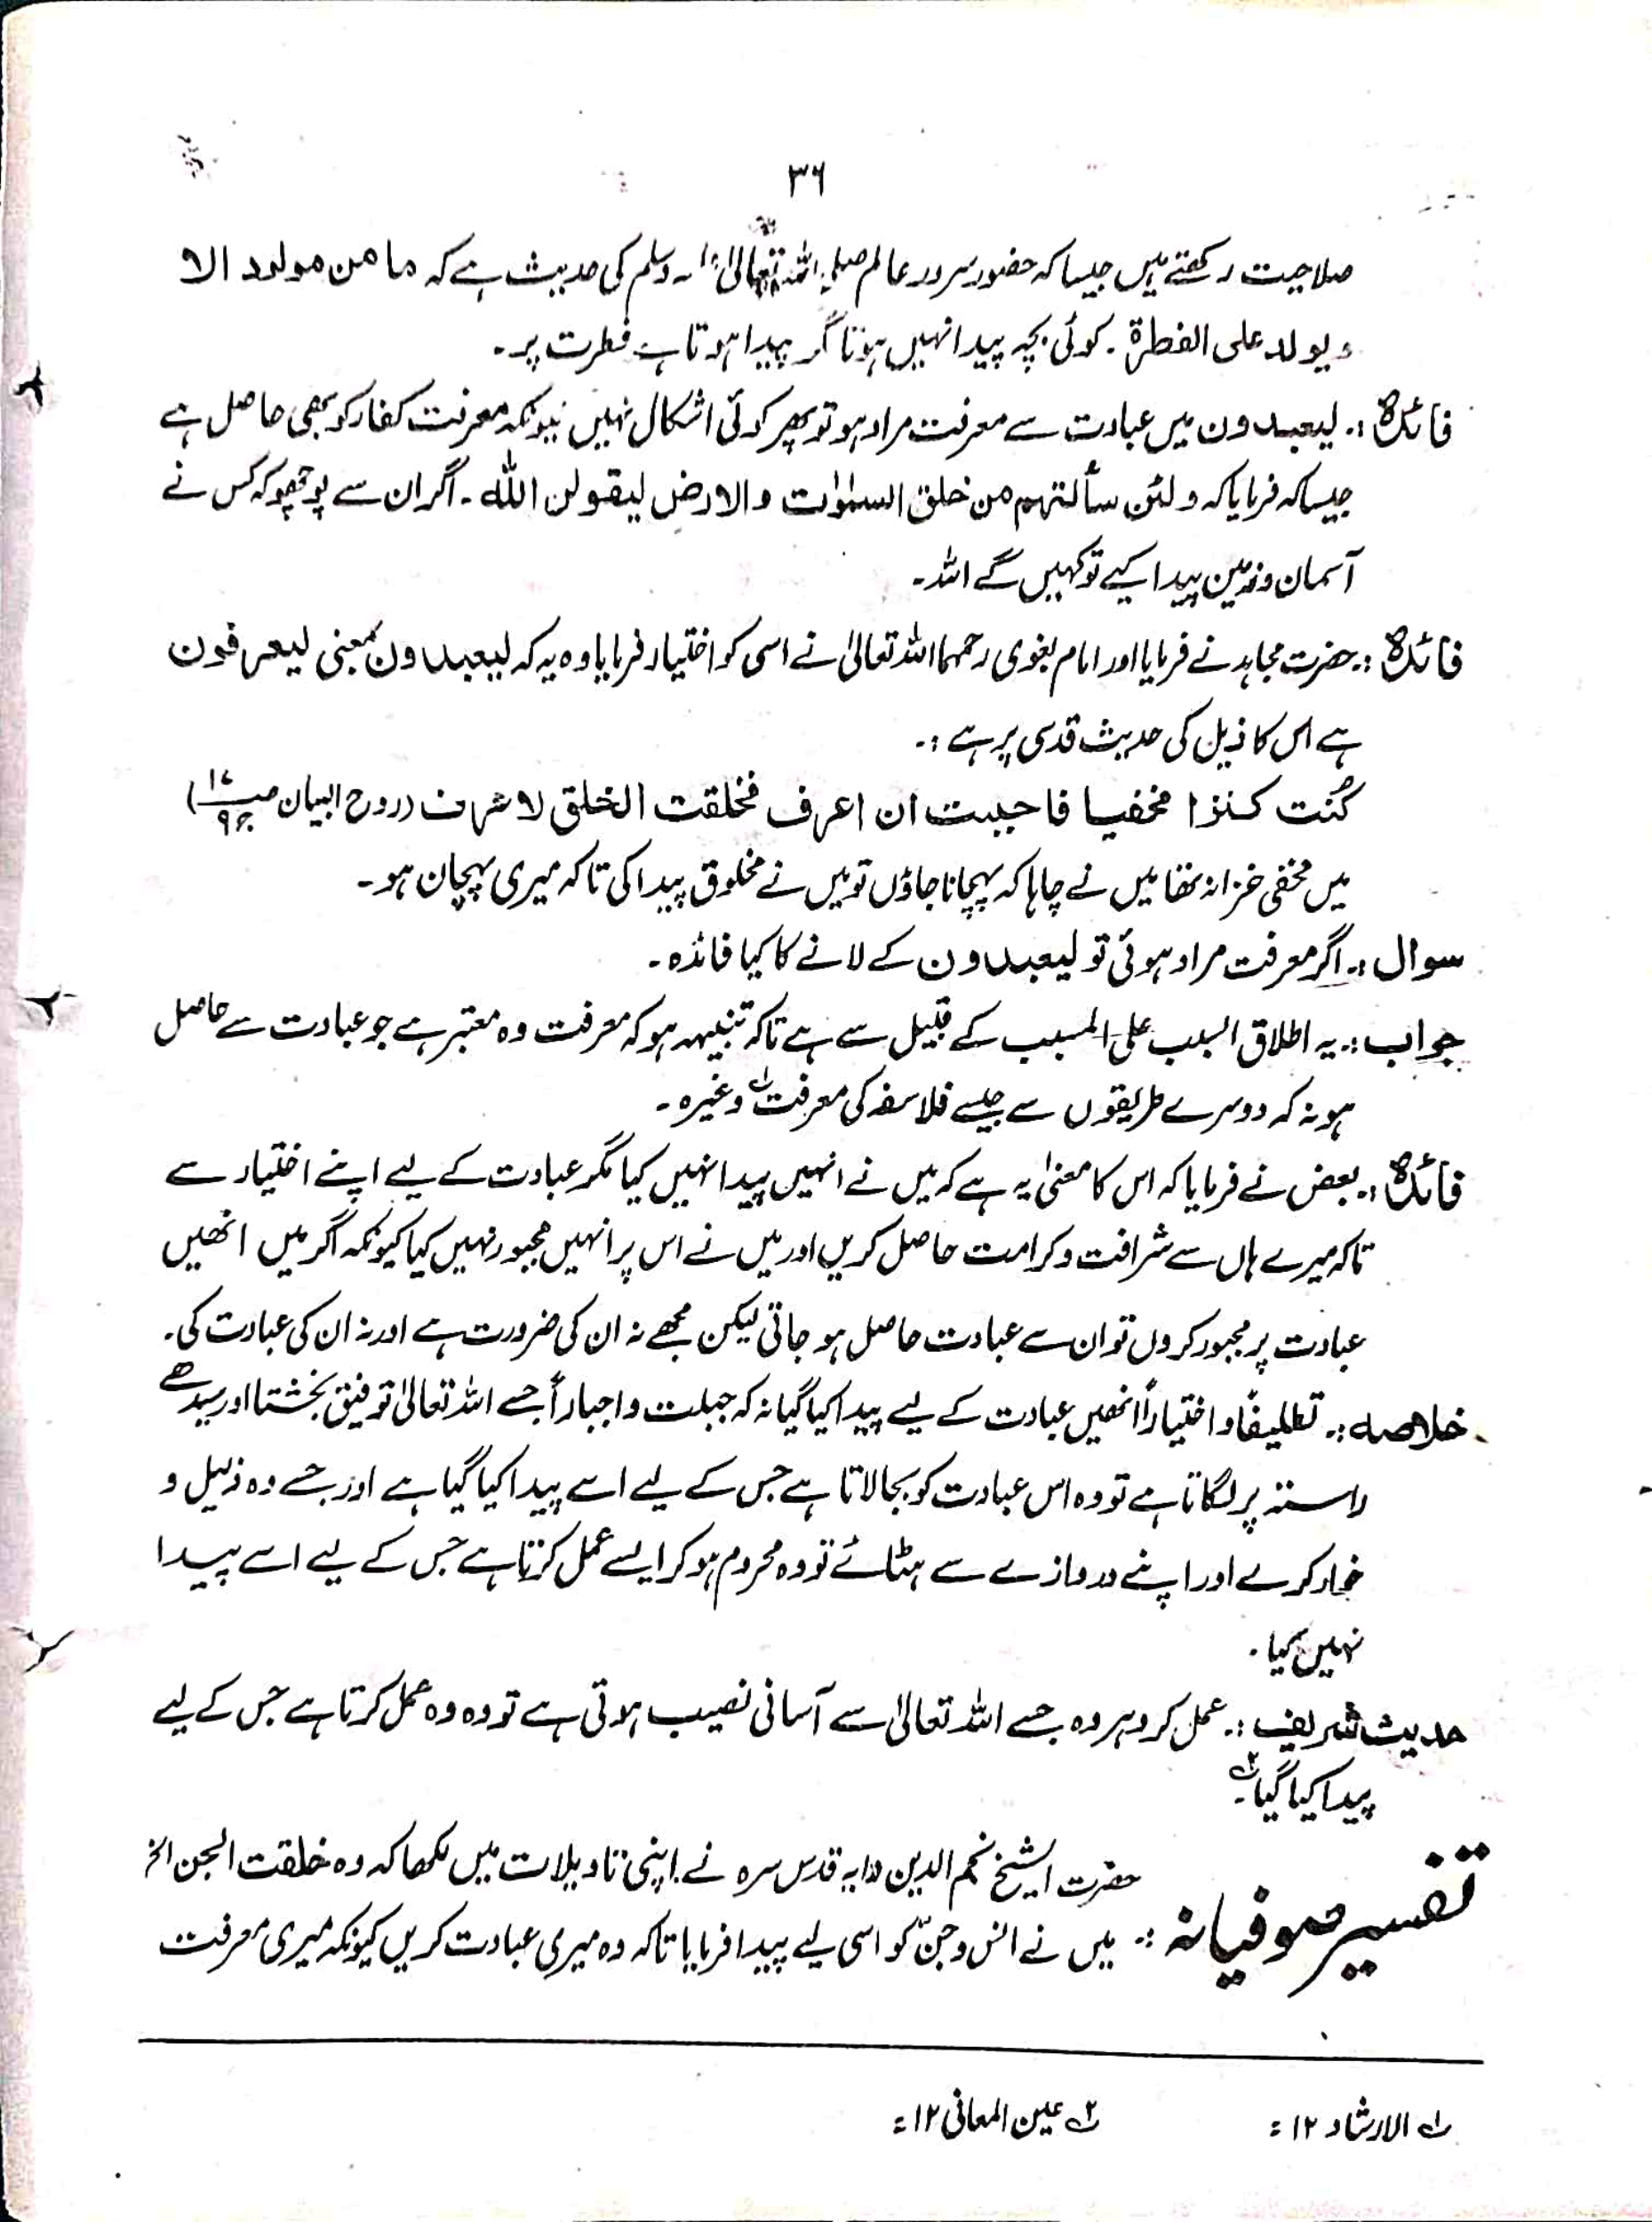 ۳۶
صلاحیت رکھتے ہیں جیسا کہ حضور سرور عالم صلی اللہ تعالیٰ وسلم کی حدیث ہے کہ ما من مولود الا
ویولد علی الفطرۃ ۔ کوئی بچہ پیدا نہیں ہوتا مگر پیدا ہوتا ہے فطرت پر۔
فائدہ :۔ لیعبدون میں عبادت سے معرفت مراد ہو تو پھر کوئی اشکال نہیں کیونکہ معرفت کفار کو بھی حاصل ہے
جیسا کہ فرمایا کہ ولئن سألتہم من خلق السمٰوٰت والارض لیقولن اللہ ۔ اگر ان سے پوچھو کہ کس نے
آسمان و زمین پیدا کیے تو کہیں گے اللہ۔
فائدہ :۔ حضرت مجاہد نے فرمایا اور امام بغوی رحمہما اللہ تعالیٰ نے اسی کو اختیار فرمایا وہ یہ کہ لیعبدون بمعنی لیعرفون
ہے اس کا ذیل کی حدیث قدسی پر ہے :۔
کُنت کنزا مخفیا فاحببت ان اعرف فخلقت الخلق لاعرف (روح البیان
میں مخفی خزانہ تھا میں نے چاہا کہ پہچانا جاؤں تو میں نے مخلوق پیدا کی تاکہ میری پہچان ہو۔
سوال :۔ اگر معرفت مراد ہوئی تو لیعبدون کے لانے کا کیا فائدہ۔
جواب :۔ یہ اطلاق السبب علی المسبب کے قبیل سے ہے تاکہ تنبیہہ ہو کہ معرفت وہ معتبر ہے جو عبادت سے حاصل
ہو نہ کہ دوسرے طریقوں سے جیسے فلاسفہ کی معرفت ؎۱ وغیرہ۔
فائدہ :۔ بعض نے فرمایا کہ اس کا معنیٰ یہ ہے کہ میں نے انہیں پیدا نہیں کیا مگر عبادت کے لیے اپنے اختیار سے
تاکہ میرے ہاں سے شرافت و کرامت حاصل کریں اور میں نے اس پر انہیں مجبور نہیں کیا کیونکہ اگر میں انھیں
عبادت پر مجبور کروں تو ان سے عبادت حاصل ہو جاتی لیکن مجھے نہ ان کی ضرورت ہے اور نہ ان کی عبادت کی۔
خلاصہ :۔ تکلیفاً و اختیاراً انھیں عبادت کے لیے پیدا کیا گیا نہ کہ جبلت و اجباراً جسے اللہ تعالیٰ توفیق بخشتا اور سیدھے
راستہ پر لگاتا ہے تو وہ اس عبادت کو بجا لاتا ہے جس کے لیے اسے پیدا کیا گیا ہے اور جسے وہ ذلیل و
خوار کرے اور اپنے دروازے سے ہٹائے تو وہ محروم ہو کر ایسے عمل کرتا ہے جس کے لیے اسے پیدا
نہیں کیا۔
حدیث شریف :۔ عمل کرو ہر وہ جسے اللہ تعالیٰ سے آسانی نصیب ہوتی ہے تو وہ وہ عمل کرتا ہے جس کے لیے
پیدا کیا گیا ؎۲۔
تفسیر صوفیانہ :۔ حضرت الشیخ نجم الدین دایہ قدس سرہ نے اپنی تاویلات میں لکھا کہ وہ خلقت الجن الخ
میں نے انس و جنّ کو اسی لیے پیدا فرمایا تاکہ وہ میری عبادت کریں کیونکہ میری معرفت
؎۱ الارشاد ۱۲ : ؎۲ عین المعانی ۱۲ :